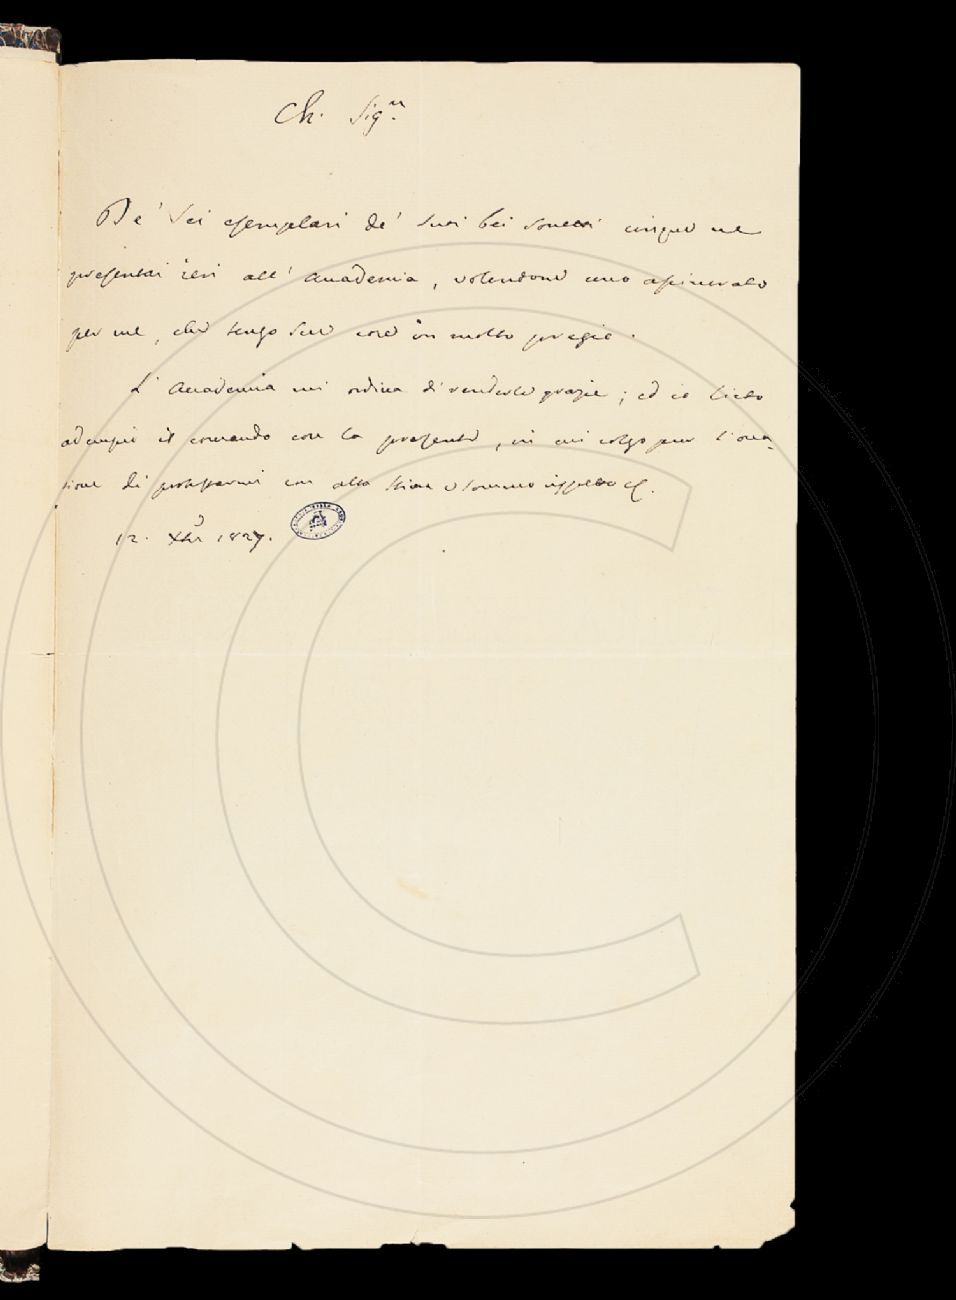 Ch. Sig.r
De' sei esemplari de' suoi bei sonetti cinque ne
presentai ieri all' Accademia, volendone uno
per me, che tengo sue cose in molto pregio.
L' Accademia mi ordina di renderle grazie; ed io lieto
adempio il comando con la presente, in cui colgo pur l' occa-
sione di protestarmi con alta stima e sommo rispetto
12. Xbre 1827.